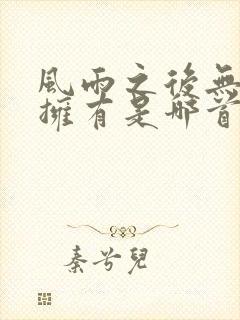 風雨之後無
擁有是哪首
秦兮兒